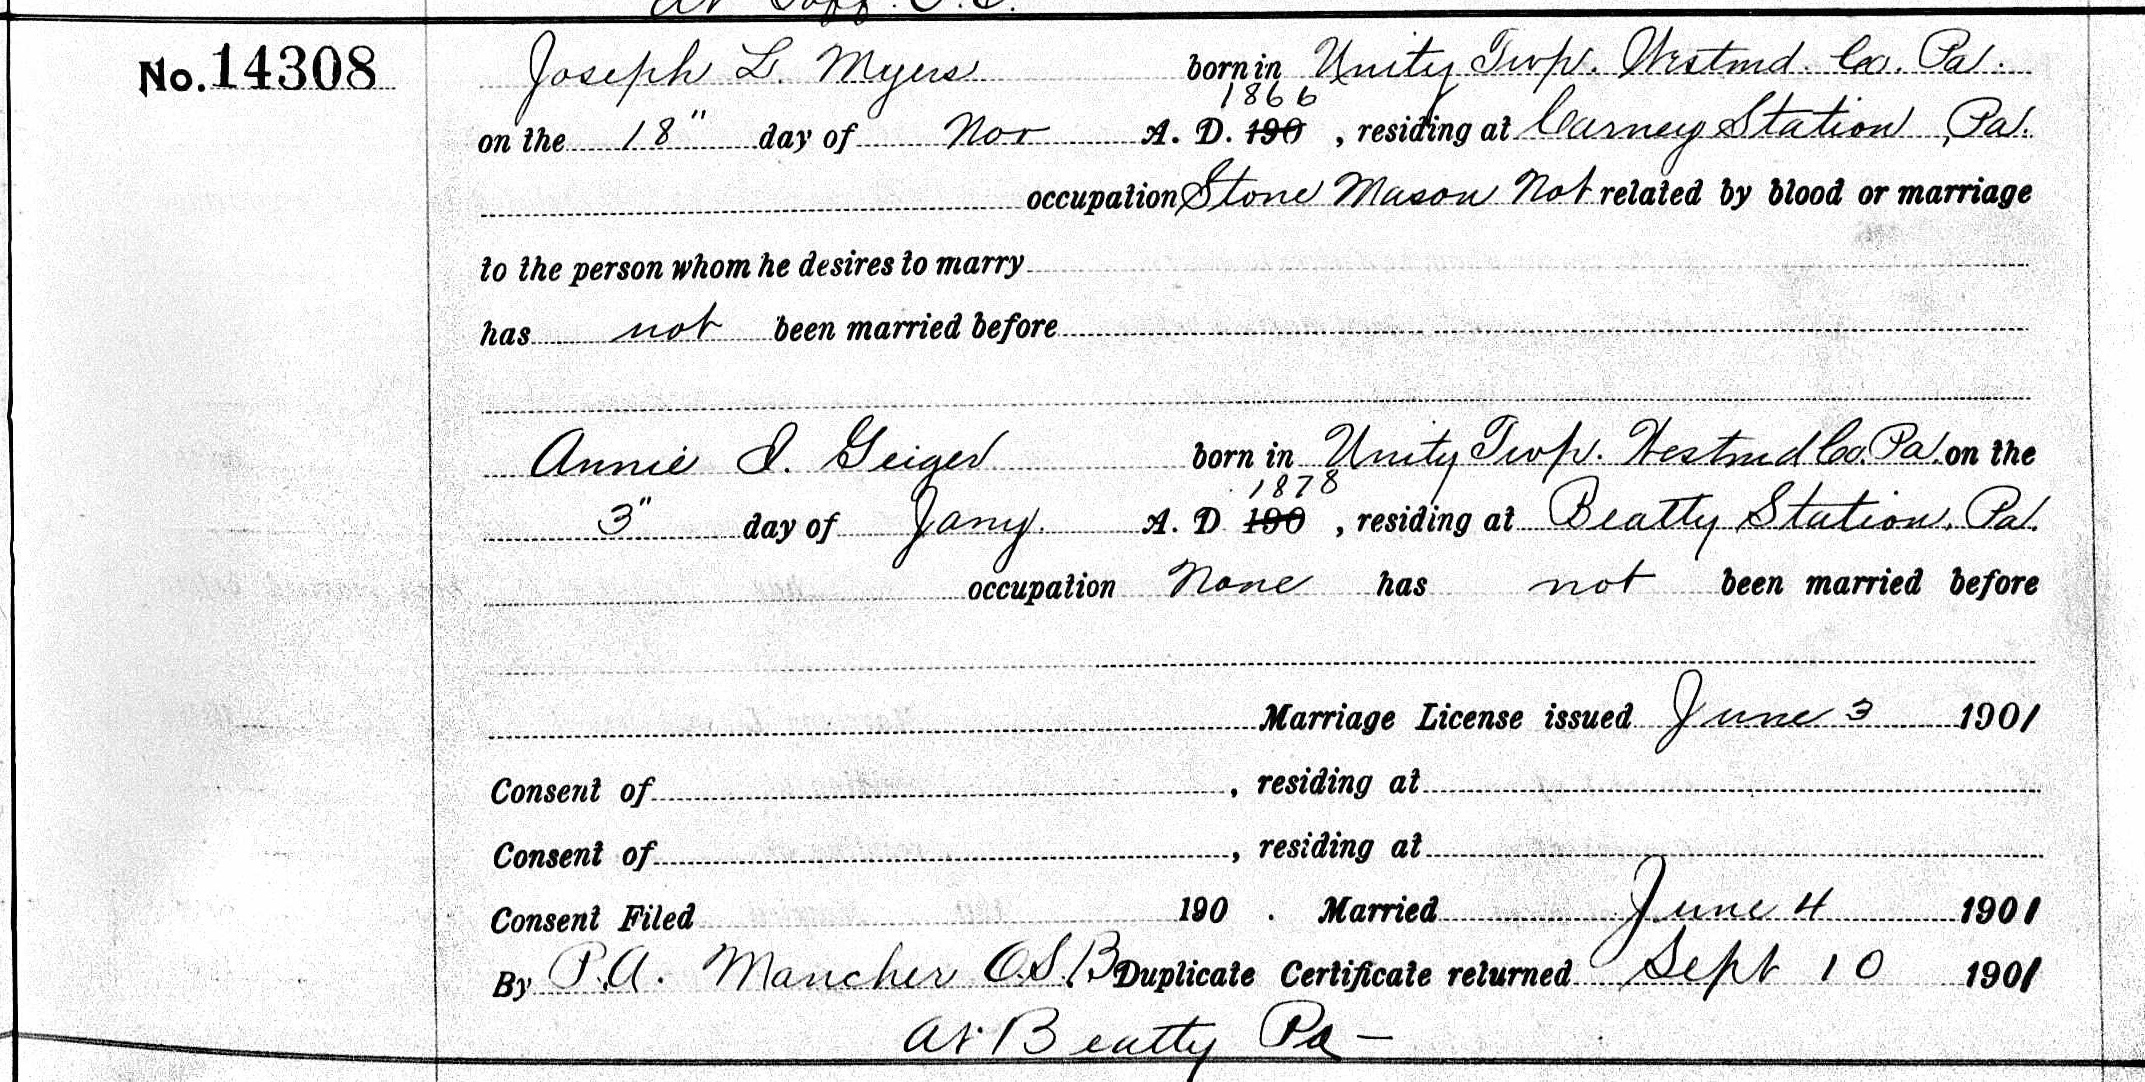 No. 14308
Joseph L. Myers born in Unity Twp. Westmd. Co. Pa.
1866
on the 18" day of Nov A. D. 190, residing at Carney Station, Pa.
occupation Stone Mason Not related by blood or marriage
to the person whom he desires to marry
has not been married before
Annie I. Geiger born in Unity Twp. Westmd Co. Pa. on the
1878
3" day of Jany. A. D 190, residing at Beatty Station, Pa.
occupation None has not been married before
Marriage License issued June 3 1901
Consent of , residing at
Consent of , residing at
Consent Filed 190 . Married June 4 1901
By P.A. Mancher O.S.B. Duplicate Certificate returned Sept 10 1901
At Beatty Pa —